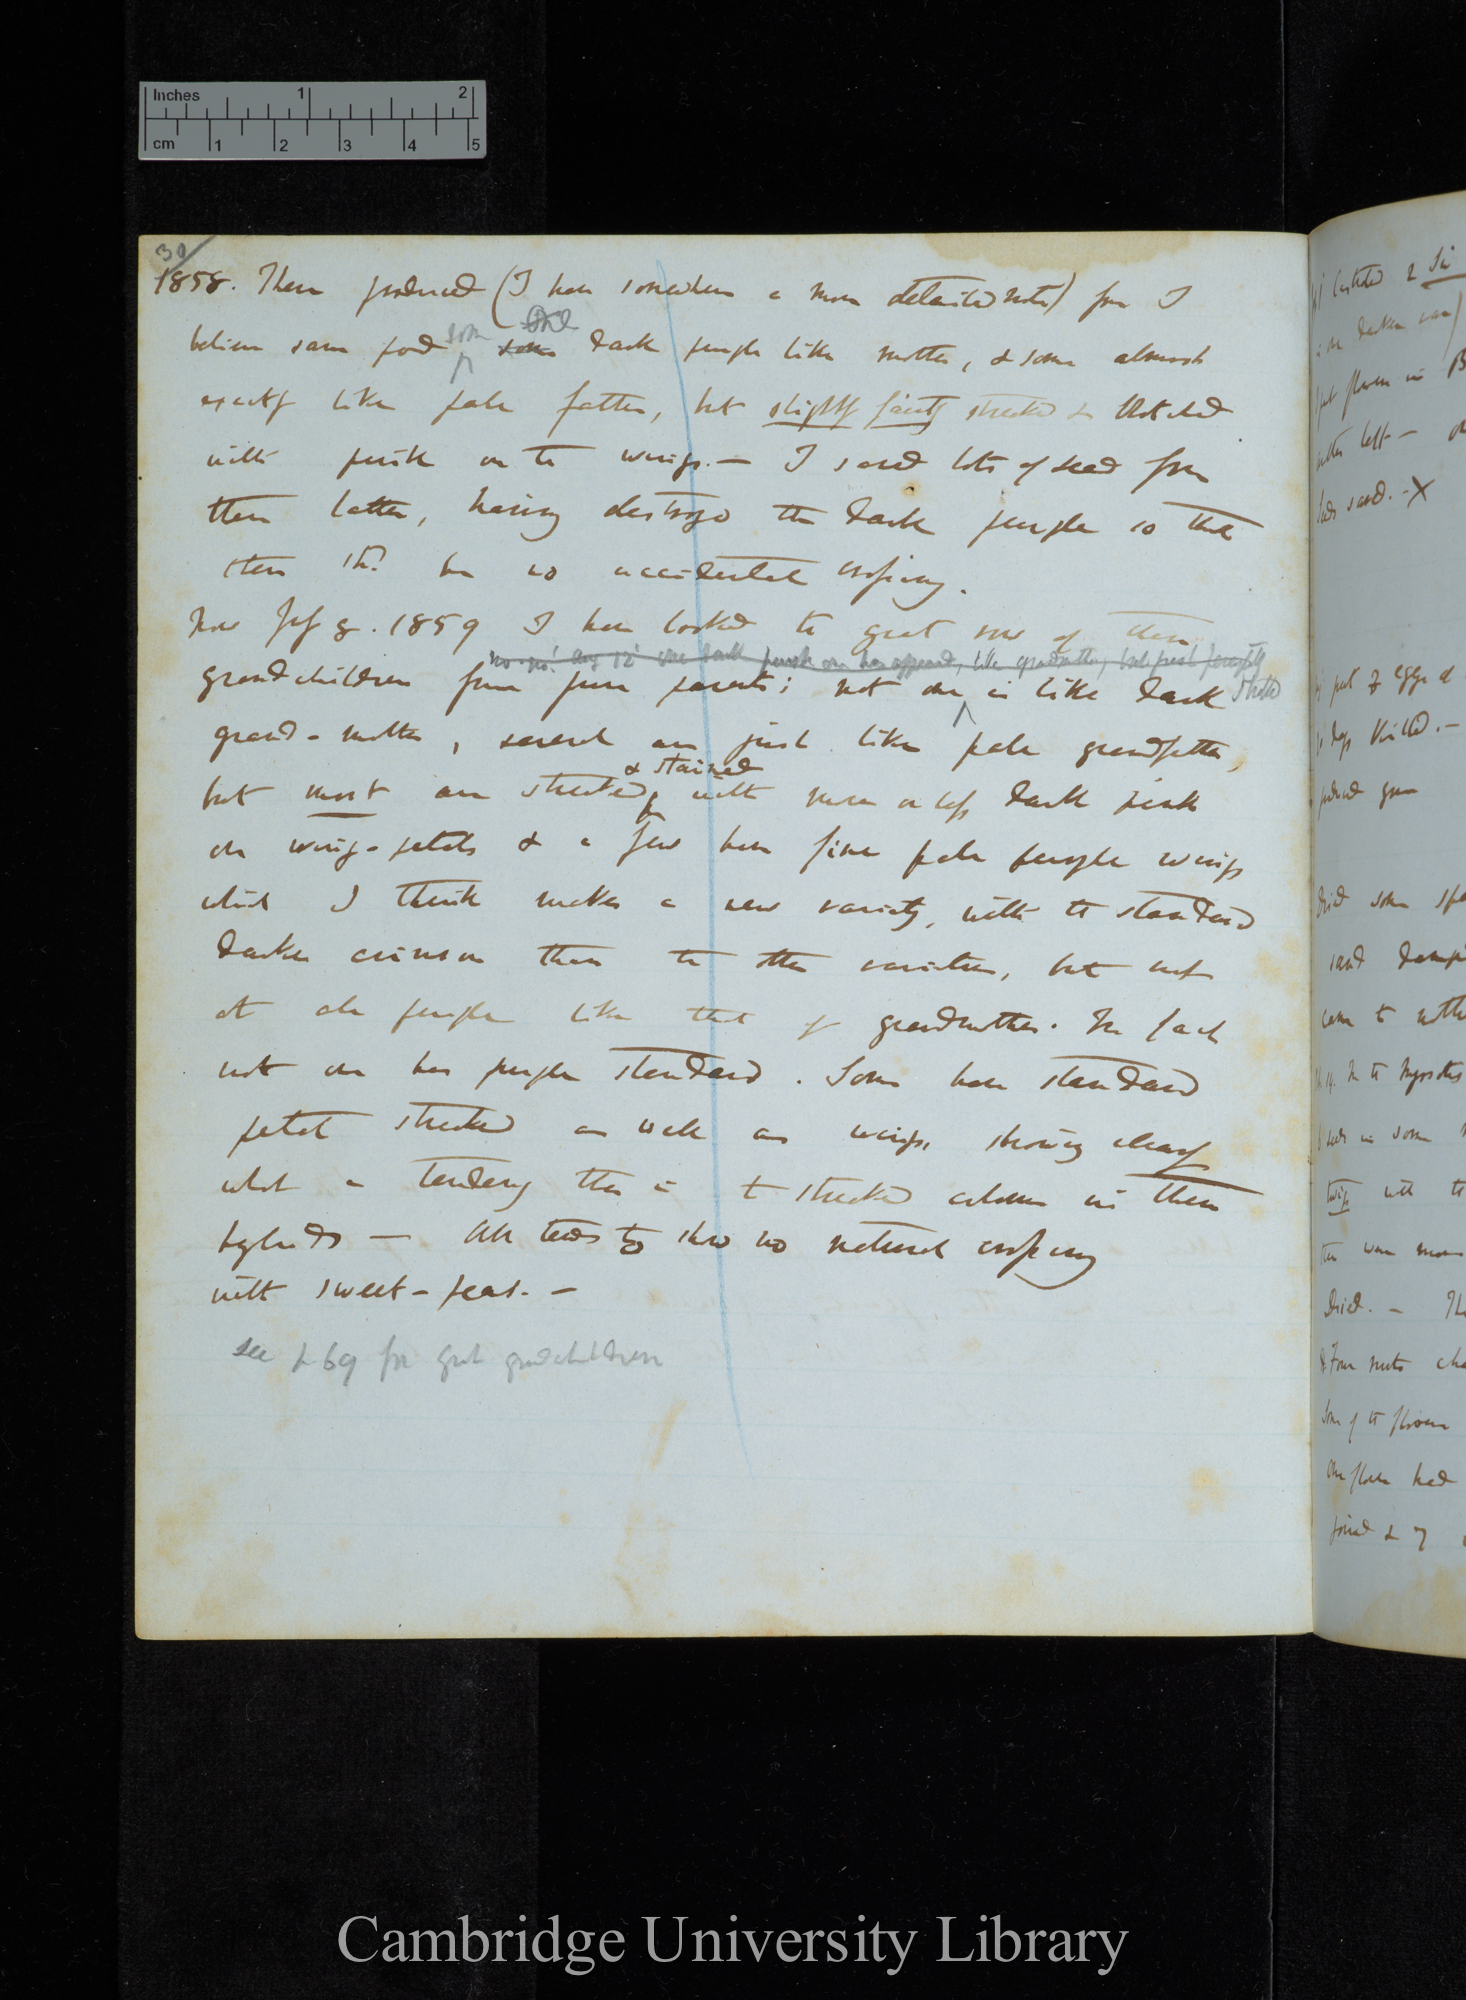 Inches 1 2
cm 1 2 3 4 5
30
1858. These produced (I have somewhere a more detailed note) from I
some
believe same pod some dark purple like mother, & some almost
exactly like pale father, but slightly faintly streaked & blotched
with pink on the wings. — I saved lots of seed from
these latter, having destroyed the dark purple so that
there shd. be no accidental crossing.
Now July 8. 1859 I have looked to great row of these
no - no! Aug 12 one dark purple one has appeared, like grandmother, but
grandchildren from pure parents; not one is like dark
grand-mother, several are just like pale grandfather,
& stained
but most are streaked with more or less dark pink
on wing-petals & a few have fine pale purple wings
which I think makes a new variety, with the standard
darker crimson than the other varieties, but not
at all purple like that of grandmother. In fact
not one has purple standard. Some have standard
petal streaked as well as wings, showing clearly
what a tendency there is to streaked colours in these
hybrids — All tends to show no natural crossing
with sweet-peas. —
see p 69 for great grandchildren
castrated &
put flowers in
left —
saved. - X
put 7 eggs
days killed. —
produced
dried some
sand damp
came to
In to Myosotis
seeds in some
twigs with the
there were more
dried. —
Four nuts
some of the flowers
one flower had
joined &
Cambridge University Library